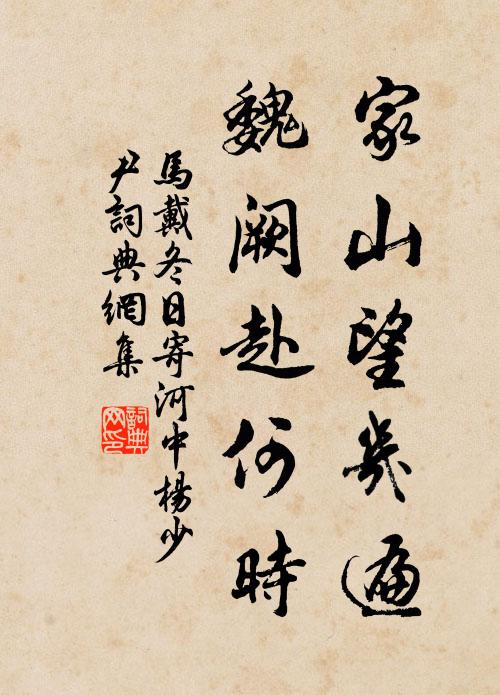 家山望幾遍
魏阙赴何時
馬戴冬日寄河中楊少
尹詞典網集
詞典网印